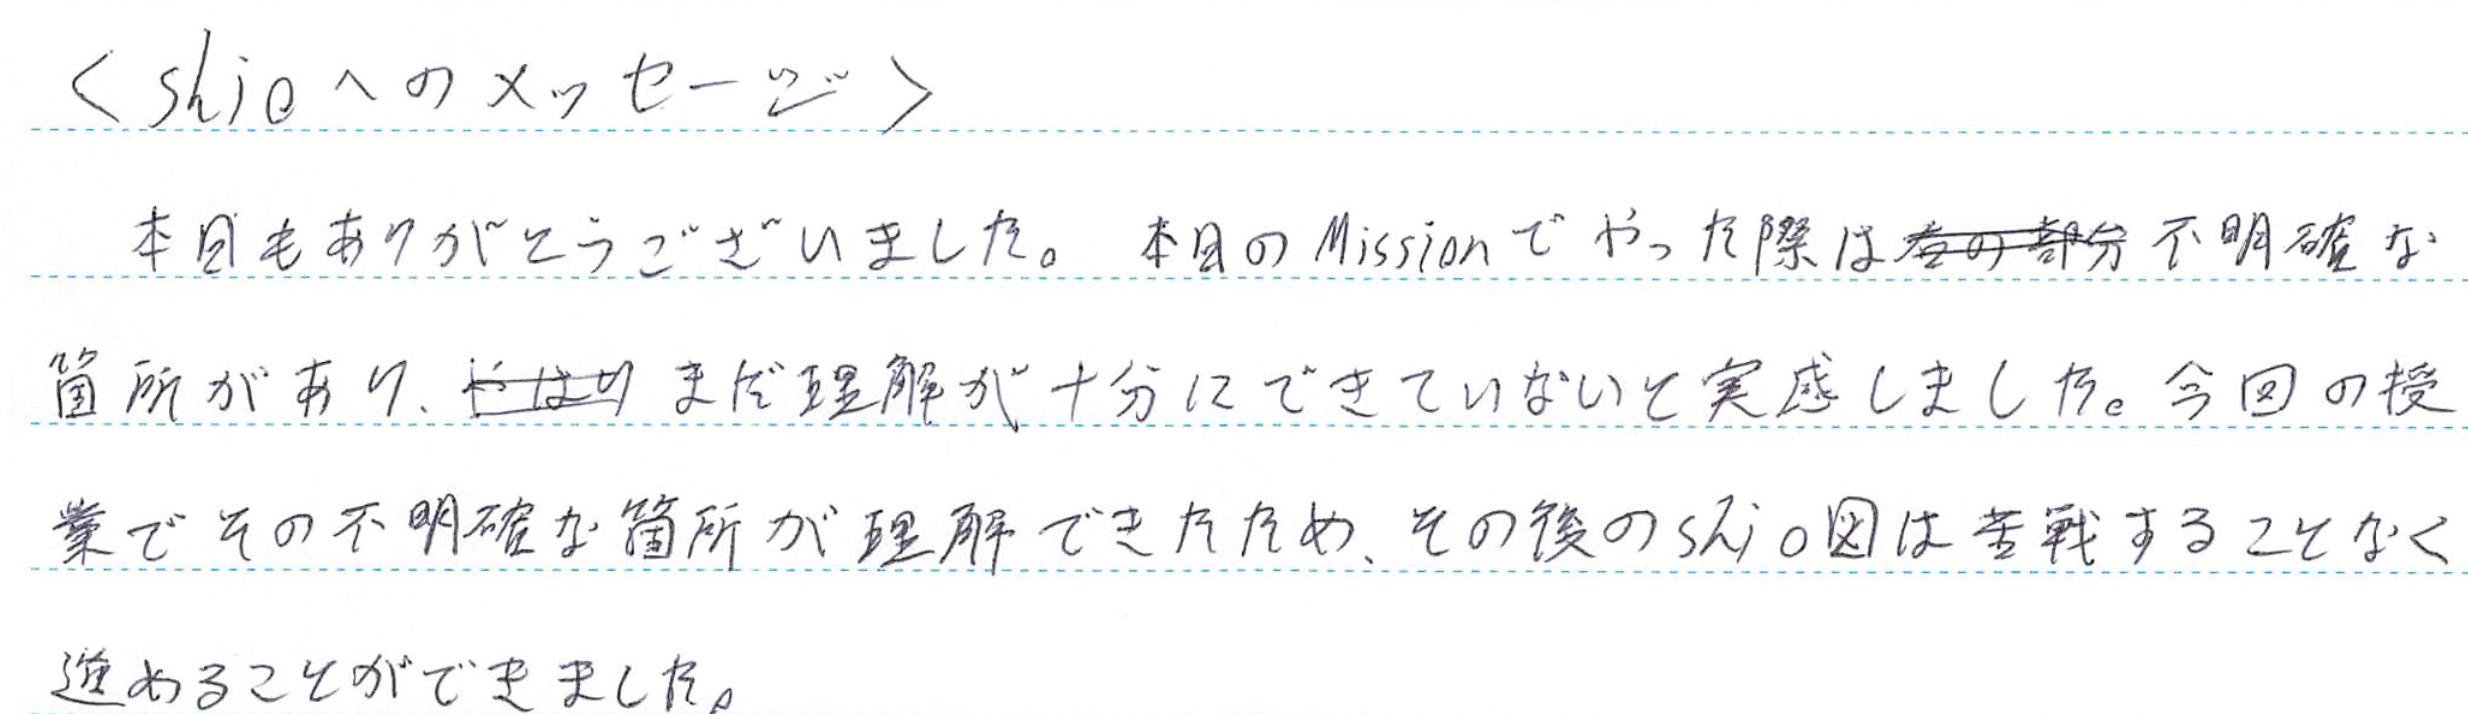 <shioへのメッセージ>
本日もありがとうございました。本日のMissionでやった際は不明確な
箇所があり、まだ理解が十分にできていないと実感しました。今回の授
業でその不明確な箇所が理解できたため、その後のshio図は苦戦することなく
進めることができました。